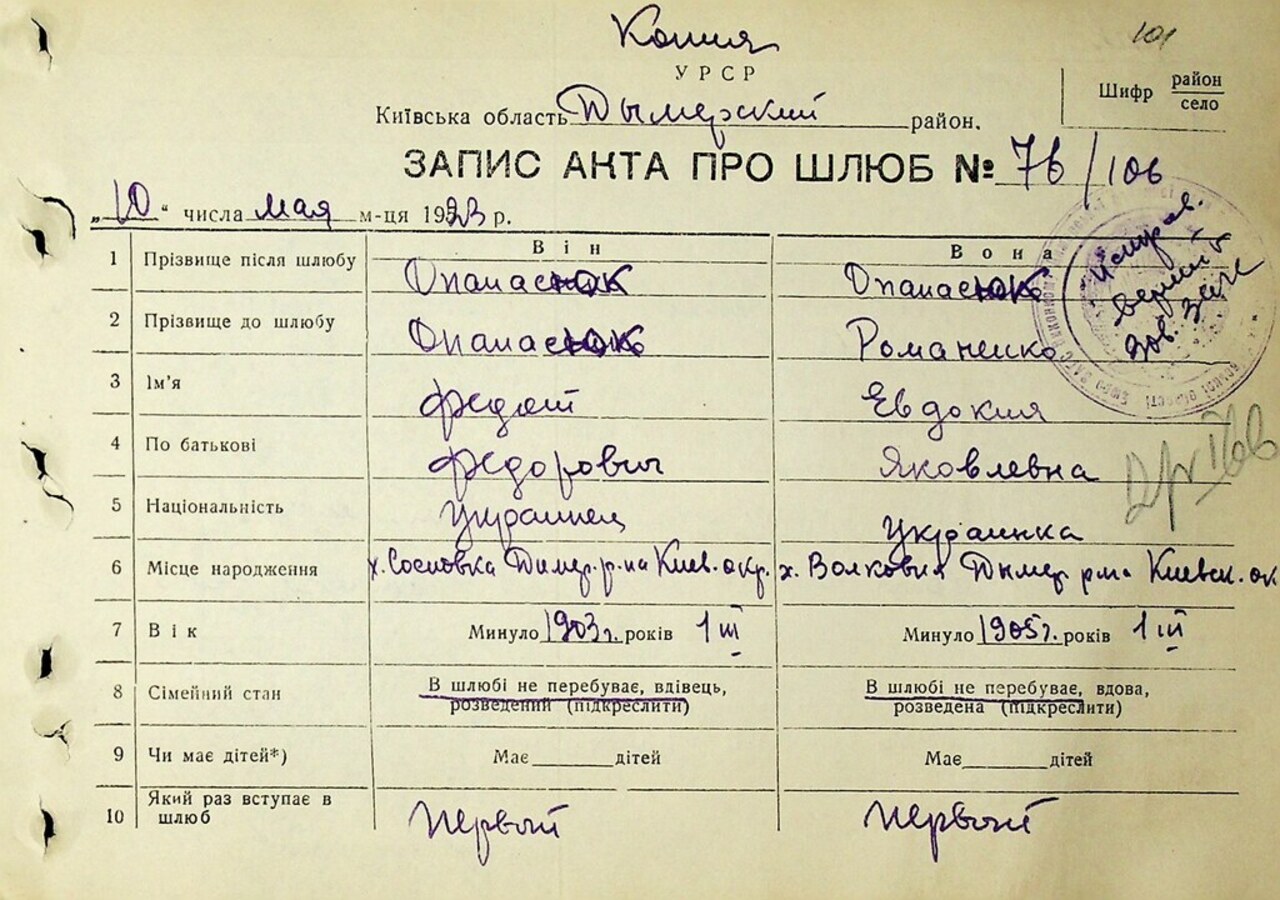 Копия
101
УРСР
Шифр район
село
Київська область Дымерский район.
ЗАПИС АКТА ПРО ШЛЮБ № 76/106
„10" числа мая м-ця 1923 р.
Він Вона
1 Прізвище після шлюбу Опанасюк Опанасюк
2 Прізвище до шлюбу Опанасюк Романенко
Исправ.
верить
зав. ЗАГС
3 Ім'я Федот Евдокия
4 По батькові Федорович Яковлевна
5 Національність Украинец Украинка
6 Місце народження х. Сосновка Дымер. р-на Киев. окр. х. Волковия Дымер р-на Киевск. ок
7 Вік Минуло 1903 г. років 1 III Минуло 1905 г. років 1 III
8 Сімейний стан В шлюбі не перебуває, вдівець, В шлюбі не перебуває, вдова,
розведений (підкреслити) розведена (підкреслити)
9 Чи має дітей*) Має дітей Має дітей
10 Який раз вступає в
шлюб первый первый